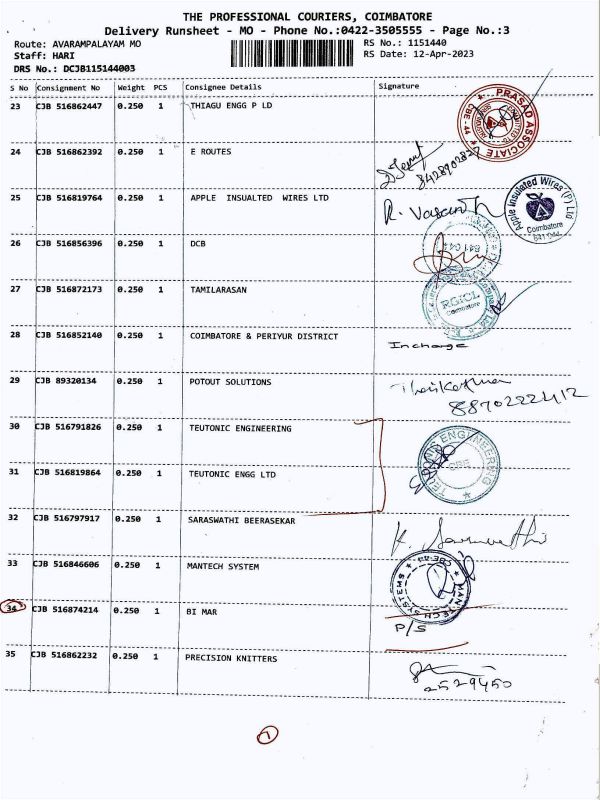 THE PROFESSIONAL COURIERS, COIMBATORE
Delivery Runsheet - MO - Phone No.:0422-3505555 - Page No.:3
Route: AVARAMPALAYAM MO RS No.: 1151440
Staff: HARI RS Date: 12-Apr-2023
DRS No.: DCJB115144003
S No Consignment No Weight PCS Consignee Details Signature
23 CJB 516862447 0.250 1 THIAGU ENGG P LD
PRASAD ASSOCIATE
CBE-44
24 CJB 516862392 0.250 1 E ROUTES
25 CJB 516819764 0.250 1 APPLE INSUALTED WIRES LTD R. Vasanth
Apple Insulated Wires (P) Ltd
Coimbatore
641 044
26 CJB 516856396 0.250 1 DCB
641 04
27 CJB 516872173 0.250 1 TAMILARASAN
RGICL
Coimbatore
28 CJB 516852140 0.250 1 COIMBATORE & PERIYUR DISTRICT Incharge
29 CJB 89320134 0.250 1 POTOUT SOLUTIONS
8870222412
30 CJB 516791826 0.250 1 TEUTONIC ENGINEERING
TEUTONIC ENGINEERING
CBE
31 CJB 516819864 0.250 1 TEUTONIC ENGG LTD
32 CJB 516797917 0.250 1 SARASWATHI BEERASEKAR
33 CJB 516846606 0.250 1 MANTECH SYSTEM
MANTECH SYSTEMS
CBE-44
34 CJB 516874214 0.250 1 BI MAR
P/S
35 CJB 516862232 0.250 1 PRECISION KNITTERS
2529450
1